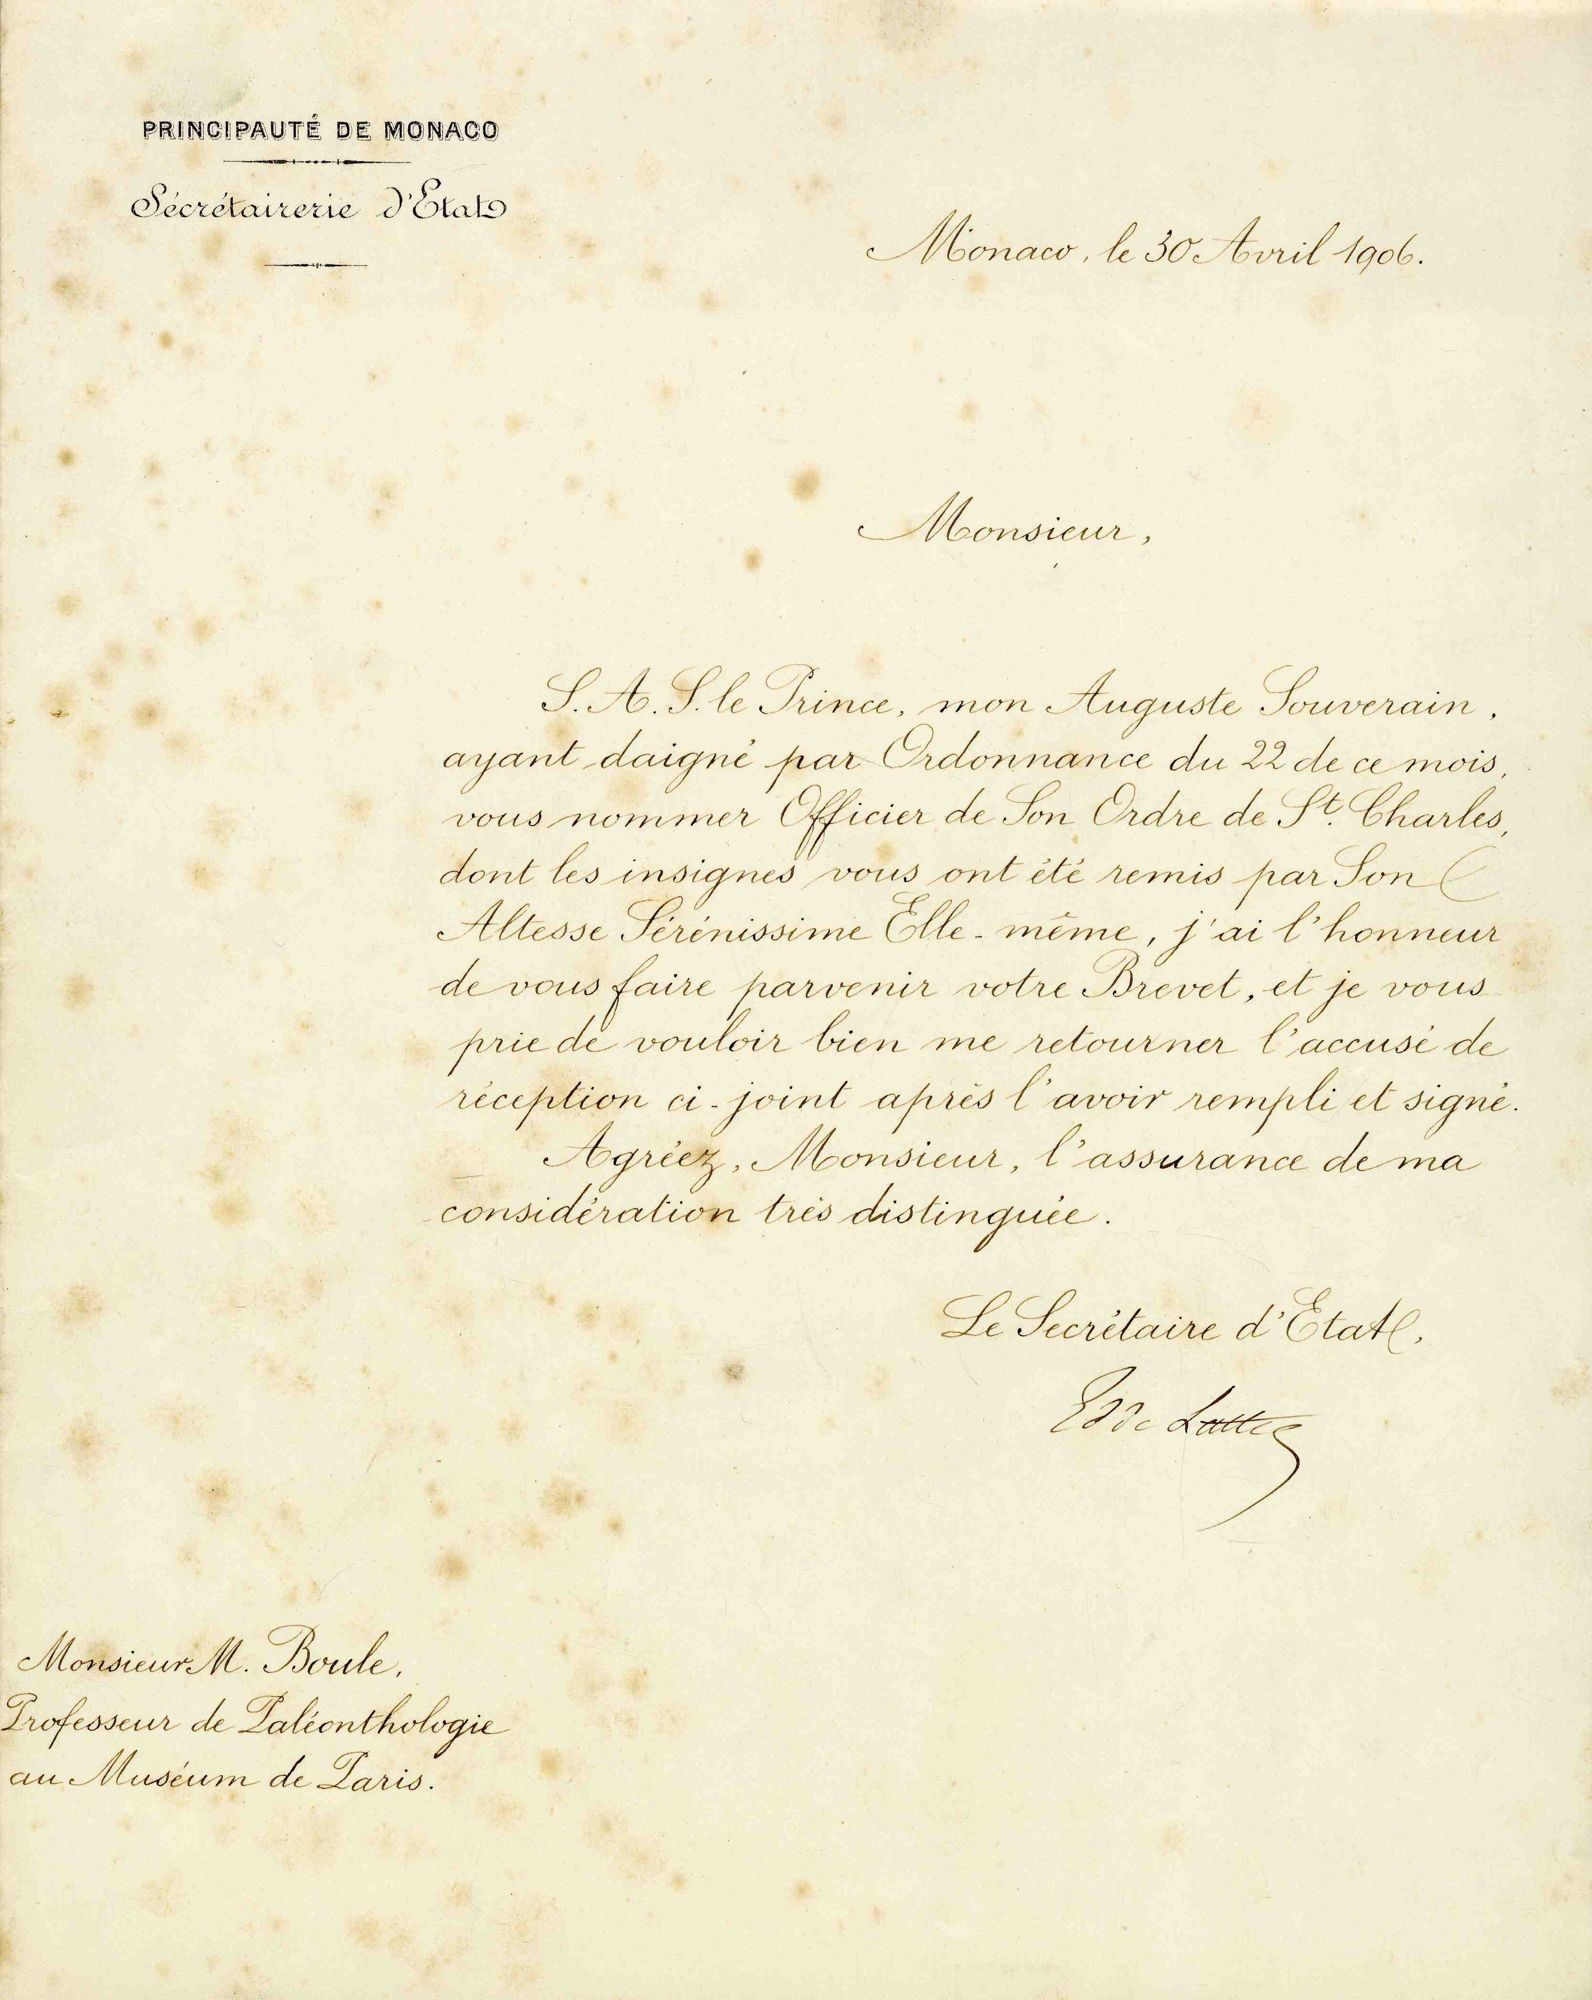 PRINCIPAUTÉ DE MONACO
Sécrétairerie d'Etat
Monaco, le 30 Avril 1906.
Monsieur,
S. A. S. le Prince, mon Auguste Souverain,
ayant daigné par Ordonnance du 22 de ce mois,
vous nommer Officier de Son Ordre de St. Charles,
dont les insignes vous ont été remis par Son
Altesse Sérénissime Elle-même, j'ai l'honneur
de vous faire parvenir votre Brevet, et je vous
prie de vouloir bien me retourner l'accusé de
réception ci-joint après l'avoir rempli et signé.
Agréez, Monsieur, l'assurance de ma
considération très distinguée.
Le Secrétaire d'Etat,
de Lattre
Monsieur M. Boule,
Professeur de Paléonthologie
au Muséum de Paris.